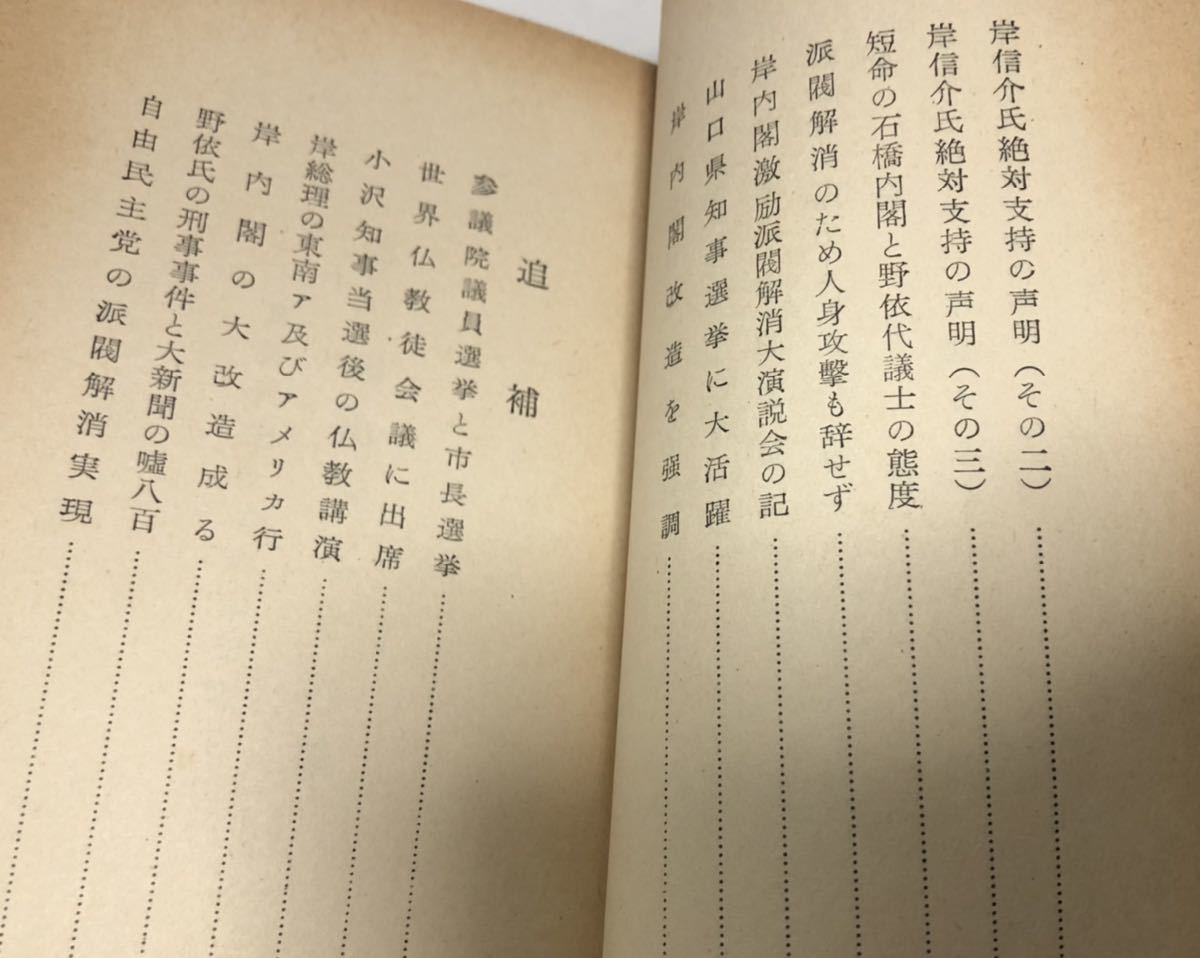 岸信介氏絶対支持の声明（その二）
岸信介氏絶対支持の声明（その三）
短命の石橋内閣と野依代議士の態度
派閥解消のため人身攻撃も辞せず
岸内閣激励派閥解消大演説会の記
山口県知事選挙に大活躍
岸内閣改造を强調
追補
参議院議員選挙と市長選挙
世界仏教徒会議に出席
小沢知事当選後の仏教講演
岸総理の東南ア及びアメリカ行
岸内閣の大改造成る
野依氏の刑事事件と大新聞の嘘八百
自由民主党の派閥解消実現